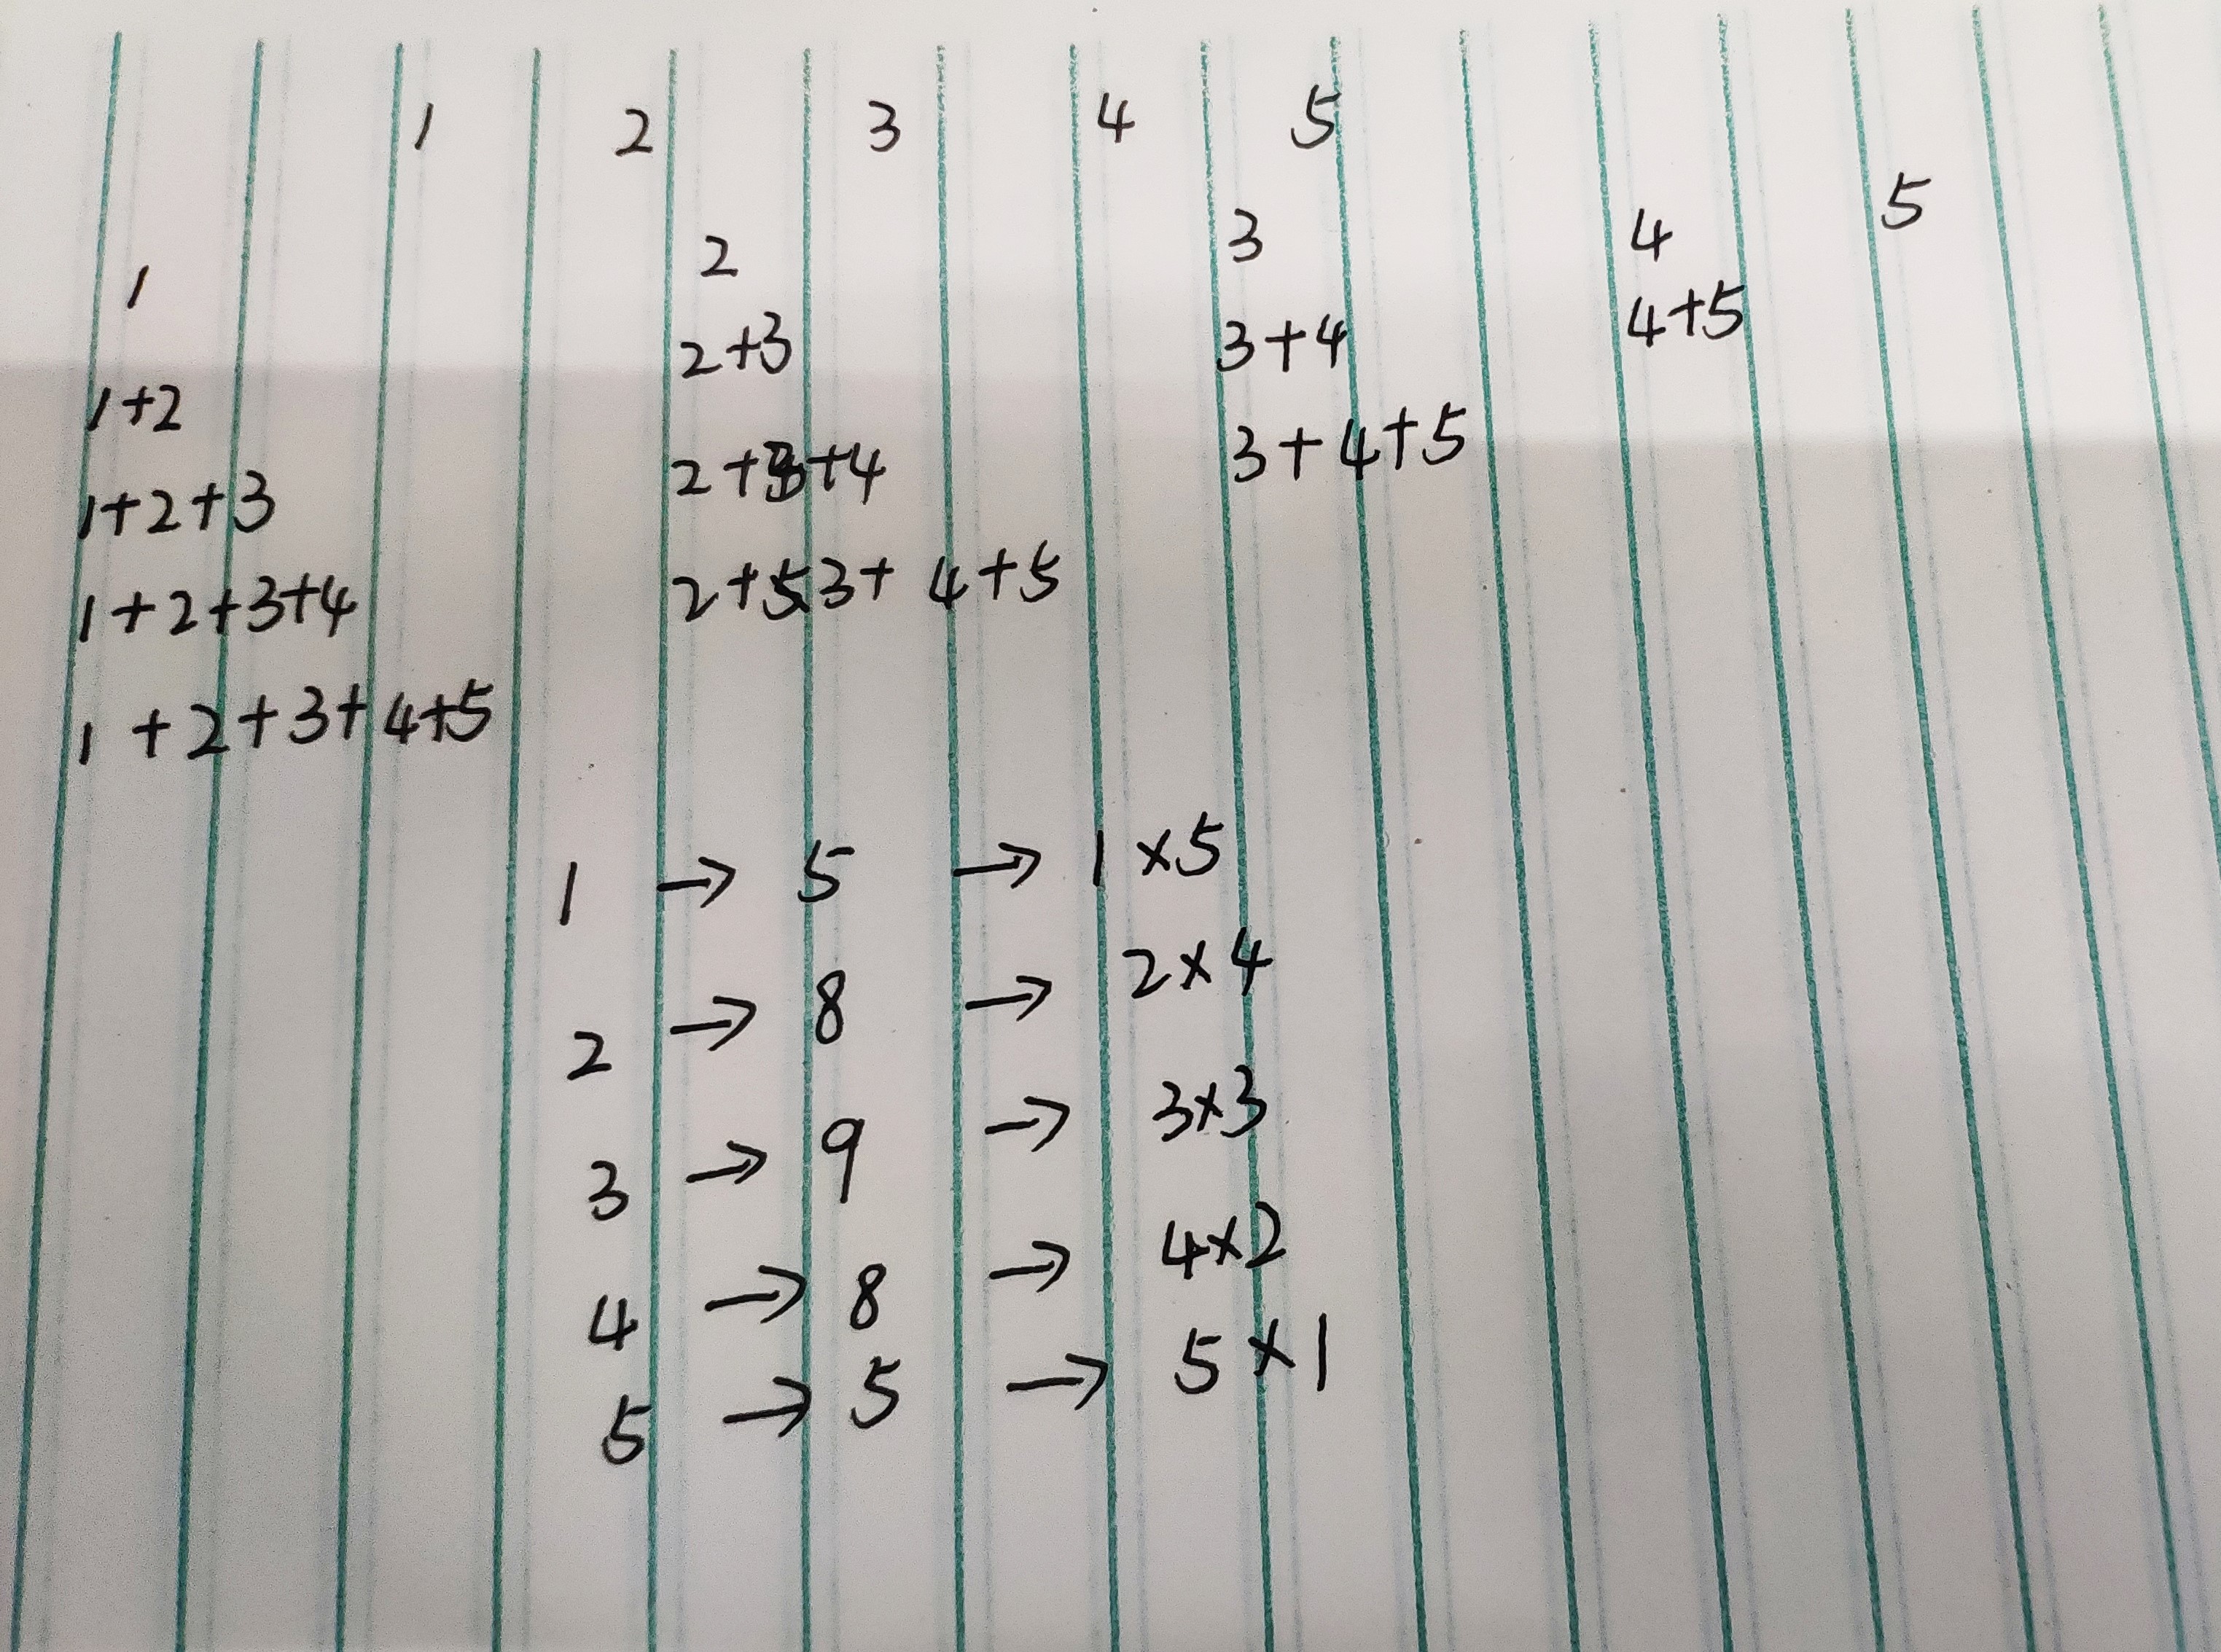 1 2 3 4 5
1 2 3 4 5
1+2 2+3 3+4 4+5
1+2+3 2+3+4 3+4+5
1+2+3+4 2+3+4+5
1+2+3+4+5
1 → 5 → 1×5
2 → 8 → 2×4
3 → 9 → 3×3
4 → 8 → 4×2
5 → 5 → 5×1